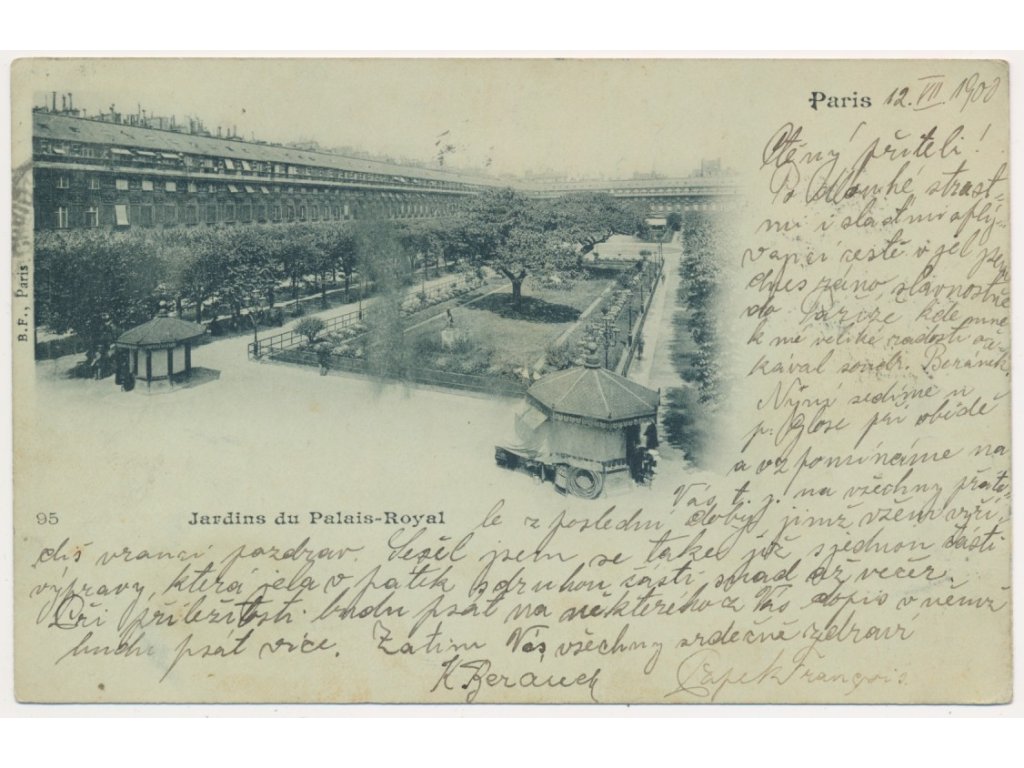 Paris 12. VII. 1900
Ctěný příteli!
Po dlouhé strast-
mi i slastmi oplý-
vající cestě vjel jsem
dnes ráno slavnostně
do Paříže, kde mne
k mé veliké radosti oče-
kával soudr. Beránek.
Nyní sedíme u
p. Glose při obědě
a vzpomínáme na
Vás t. j. na všechny přáte-
le z poslední doby, jimž všem vyři-
diš vroucí pozdrav. Sešel jsem se také již s jednou částí
výpravy, která jela v pátek s druhou částí snad až večer
Při příležitosti budu psát na některého z Vás dopis v němž
budu psát více. Zatím Vás všechny srdečně zdraví
K Beránek Čapek François
B.F., Paris
95 Jardins du Palais-Royal